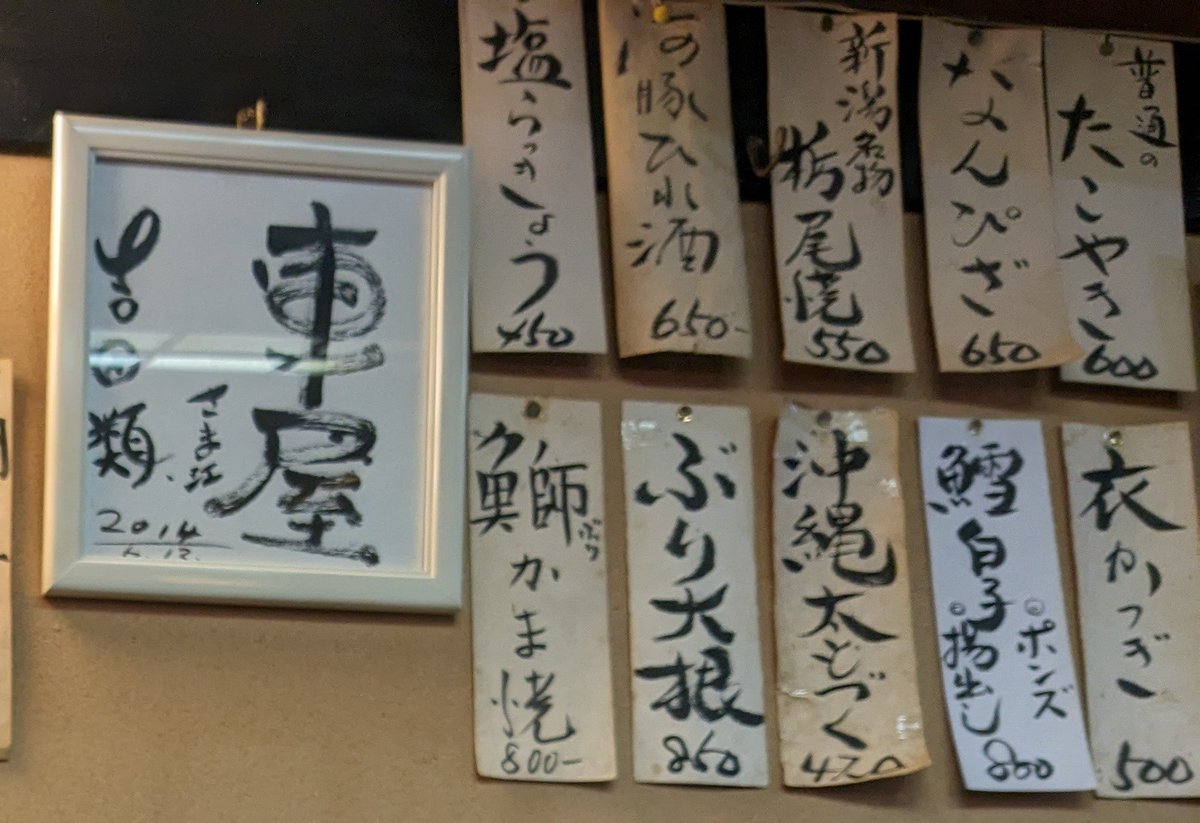 普通の
たこやき
600
なんぴざ
650
新潟名物
栃尾焼
550
の豚ひれ酒
650-
塩らっきょう
450
衣かつぎ
500
鱈白子
ポンズ
揚出し
800
沖縄太もづく
420
ぶり大根
860
鰤かま焼
ぶり
800-
車屋
さま江
吉田類
2014
6.12.